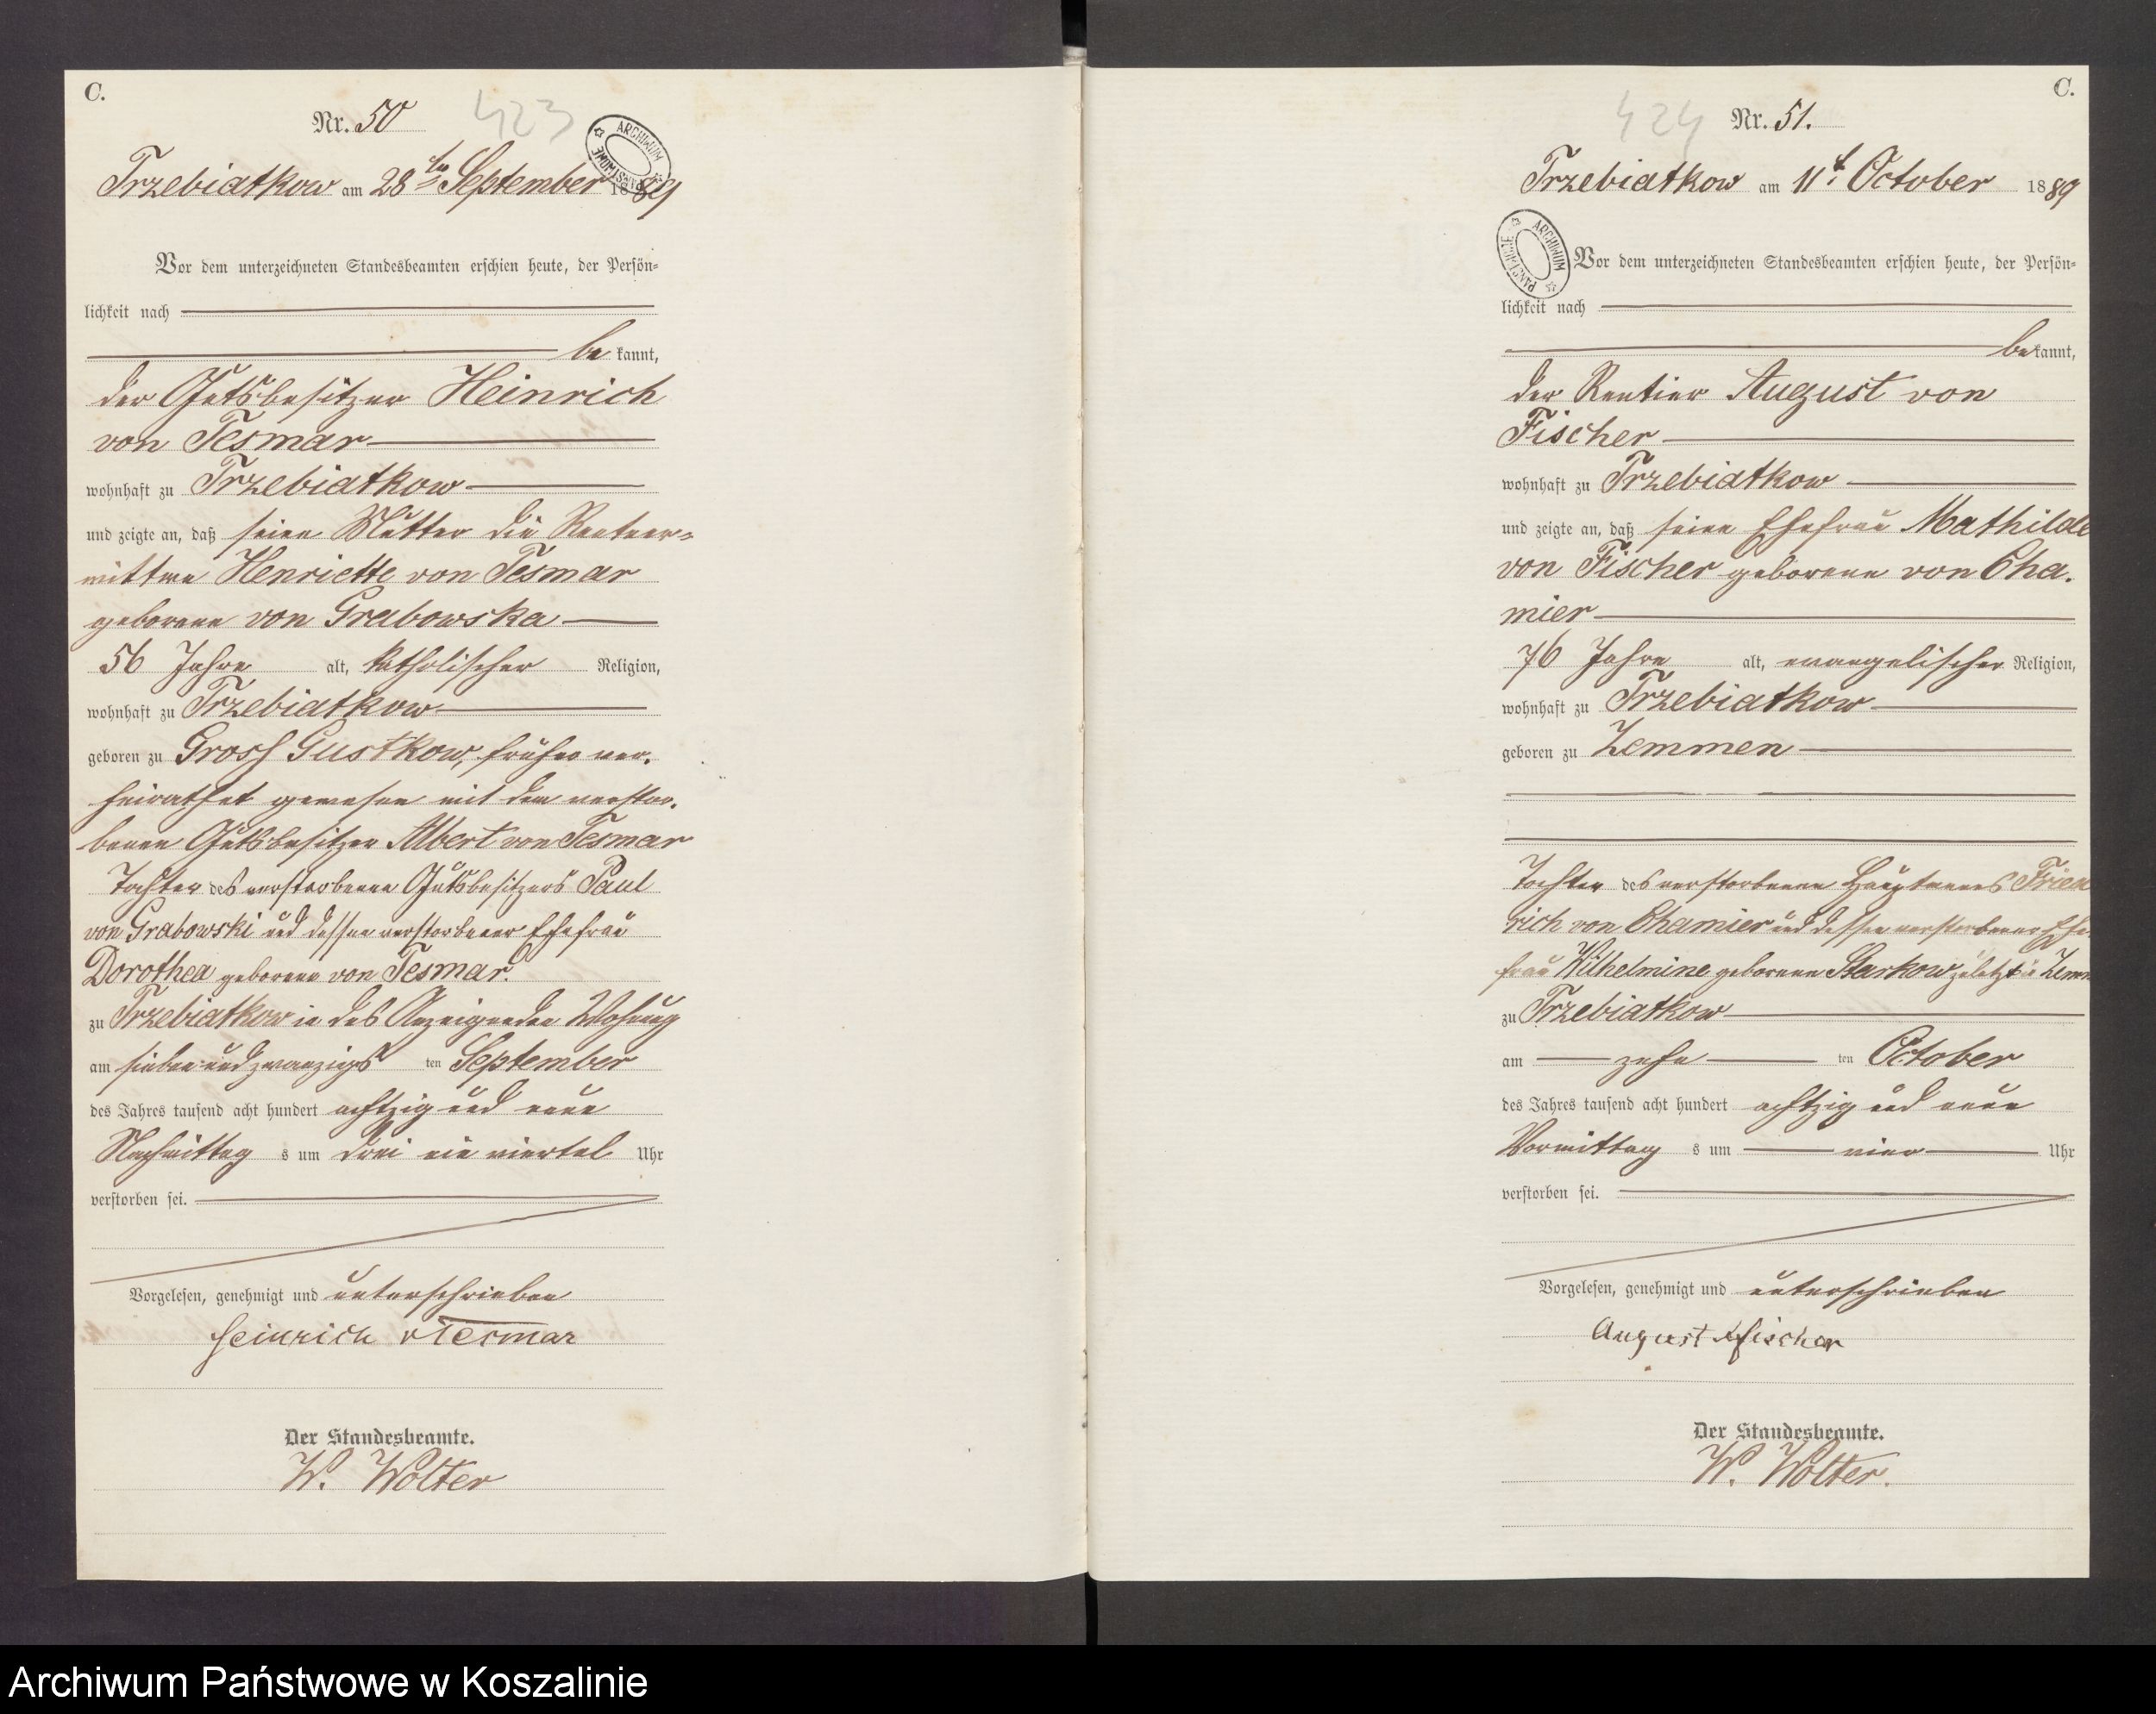 C.
Nr. 50
423
ARCHIWUM PAŃSTWOWE
Trzebiatkow am 28ten September 1889
Vor dem unterzeichneten Standesbeamten erschien heute, der Persön-
lichkeit nach
be kannt,
der Gutsbesitzer Heinrich
von Tesmar
wohnhaft zu Trzebiatkow
und zeigte an, daß seine Mutter die Rentner-
wittwe Henriette von Tesmar
geborene von Grabowska
56 Jahre alt, katholischer Religion,
wohnhaft zu Trzebiatkow
geboren zu Gross Gustkow, früher ver-
heirathet gewesen mit dem verstor-
benen Gutsbesitzer Albert von Tesmar
Tochter des verstorbenen Gutsbesitzers Paul
von Grabowski und dessen verstorbener Ehefrau
Dorothea geborene von Tesmar.
zu Trzebiatkow in des Anzeigenden Wohnung
am sieben und zwanzigs ten September
des Jahres tausend acht hundert achtzig und neun
Nachmittag s um drei ein viertel Uhr
verstorben sei.
Vorgelesen, genehmigt und unterschrieben
Heinrich v Tesmar
Der Standesbeamte.
W. Wolter
C.
424
Nr. 51.
Trzebiatkow am 11t. October 1889
ARCHIWUM PAŃSTWOWE
Vor dem unterzeichneten Standesbeamten erschien heute, der Persön-
lichkeit nach
be kannt,
der Rentier August von
Fischer
wohnhaft zu Trzebiatkow
und zeigte an, daß seine Ehefrau Mathilde
von Fischer geborene von Cha-
mier
76 Jahre alt, evangelischer Religion,
wohnhaft zu Trzebiatkow
geboren zu Zemmen
Tochter des verstorbenen Hauptmanns Fried
rich von Chamier und dessen verstorbener Ehe-
frau Wilhelmine geborene Starkow zuletzt in Zemm
zu Trzebiatkow
am zehn ten October
des Jahres tausend acht hundert achtzig und neun
Vormittag s um vier Uhr
verstorben sei.
Vorgelesen, genehmigt und unterschrieben
August v Fischer
Der Standesbeamte.
W. Wolter.
Archiwum Państwowe w Koszalinie